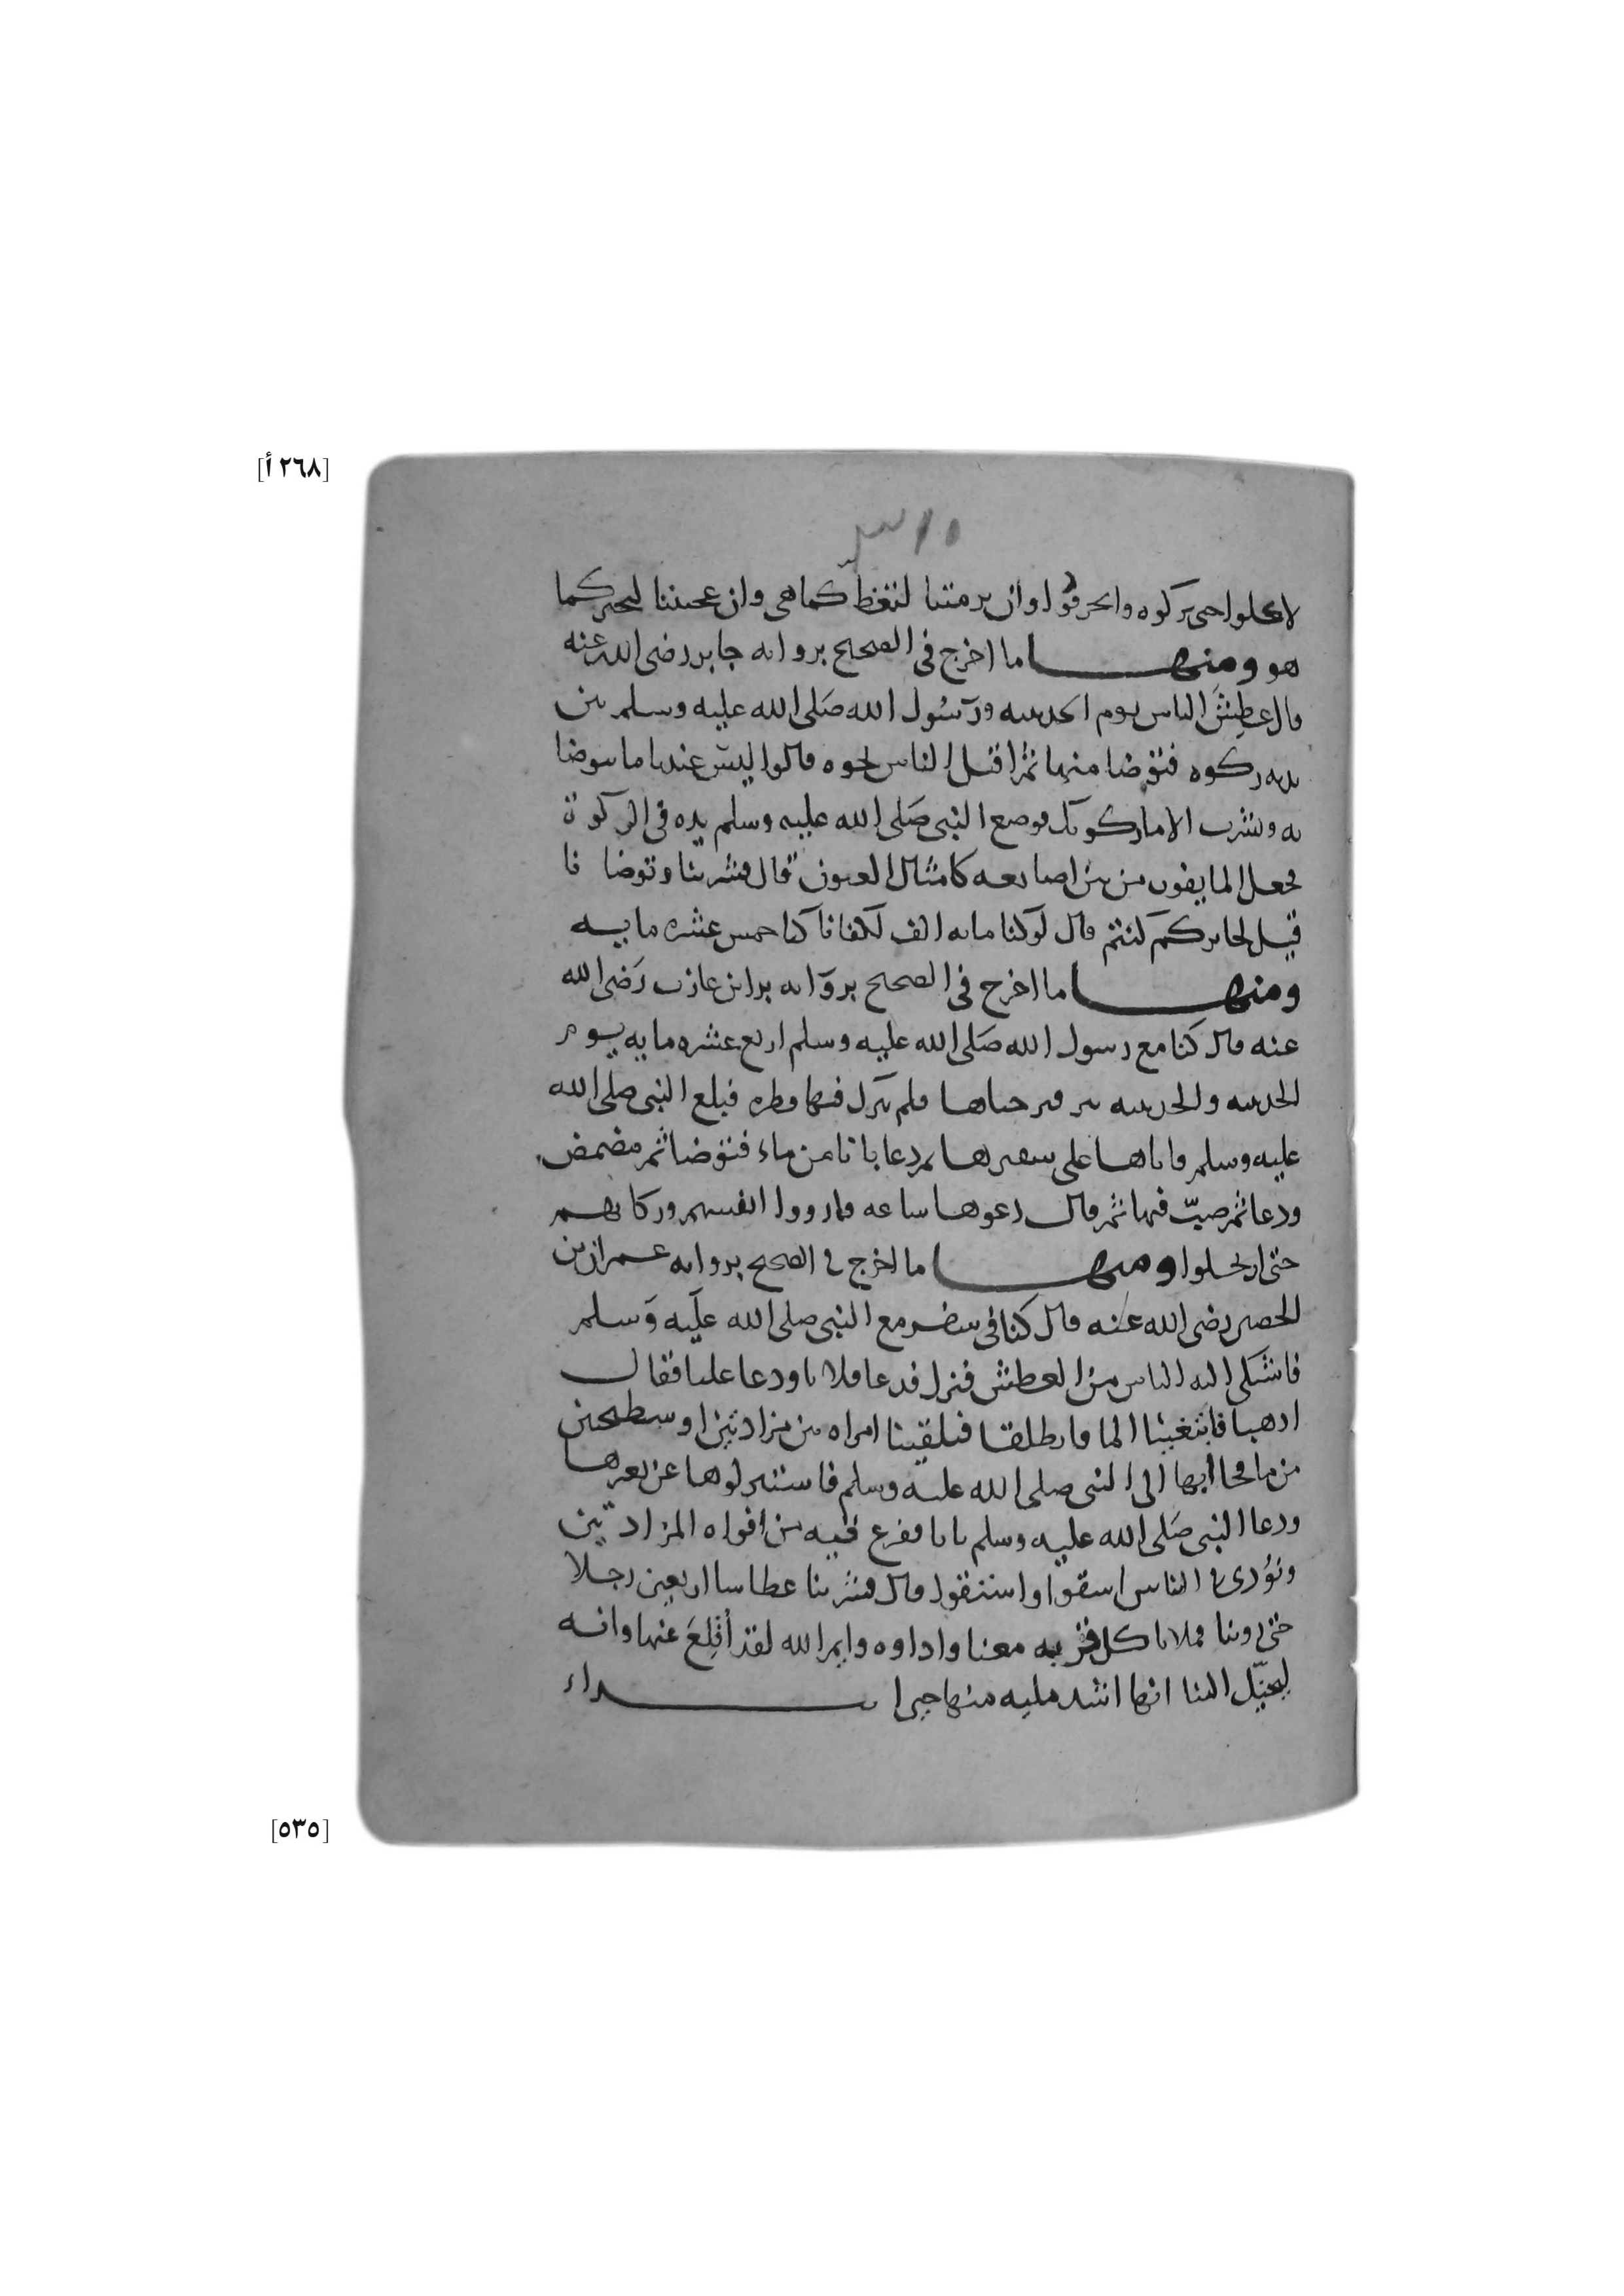 [٢٦٨ أ]
٣١٥
لاكلوا حتى تركوه وانحرفوا وان برمتنا لتغط كما هي وان عجيننا ليخبز كما
هو ومنها ما اخرج في الصحيح بروايه جابر رضى الله عنه
قال عطِشَ الناس يوم الحديبيه ورسُول الله صَلى الله عليه وسلم بين
يديه ركوه فتوضا منها ثم اقبل الناس نحوه قالوا ليس عندنا ما نتوضا
به ونشرب الا ما في ركوتك فوضع النبي صَلى الله عليه وسلم يده في الركوة
فجعل الما يفور من بين اصابعه كامثال العيون قال فشربنا وتوضا نا
قيل لجابر كم كنتم قال لو كنا مايه الف لكفانا كنا خمس عشره مايه
ومنها ما اخرج في الصحيح بروَايه برا بن عازب رَضى الله
عنه قال كنا مع رسول الله صَلى الله عليه وسلم اربع عشره مايه يوم
الحديبيه والحديبيه بير فنزحناها فلم نترك فيها قطره فبلغ النبي صلى الله
عليه وسلم فاتاها على شفيرها ثم دعا بانا من ماء فتوضا ثم مضمض
ودعا ثم صبّ فيها ثم قال دعوها ساعه فارووا انفسهم وركابهم
حتى ارتحلوا ومنها ما اخرج في الصحيح بروايه عمران بن
الحصين رضى الله عنه قال كنا في سفر مع النبي صلى الله علَيه وَسلم
فاشتكى اليه الناس من العطش فنزل فدعا فلانا ودعا عليا فقال
اذهبا فابتغيا الما فانطلقا فتلقينا امراه بين مزادتين او سطيحتين
من ما فجاابها الى النبي صلى الله عليه وسلم فاستنزلوها عن بعيرها
ودعا النبي صَلى الله عليه وسلم بانا ففرغ فيه من افواه المزادتين
ونُودى في الناس اسقوا واستقوا قال فشربنا عطاشا اربعين رجلا
حتى روينا فملانا كل قربه معنا واداوه وايم الله لقد أُقلِعَ عنها وانه
ليخيّل الينا انها اشد مليه منها حين ابتداء
[٥٣٥]